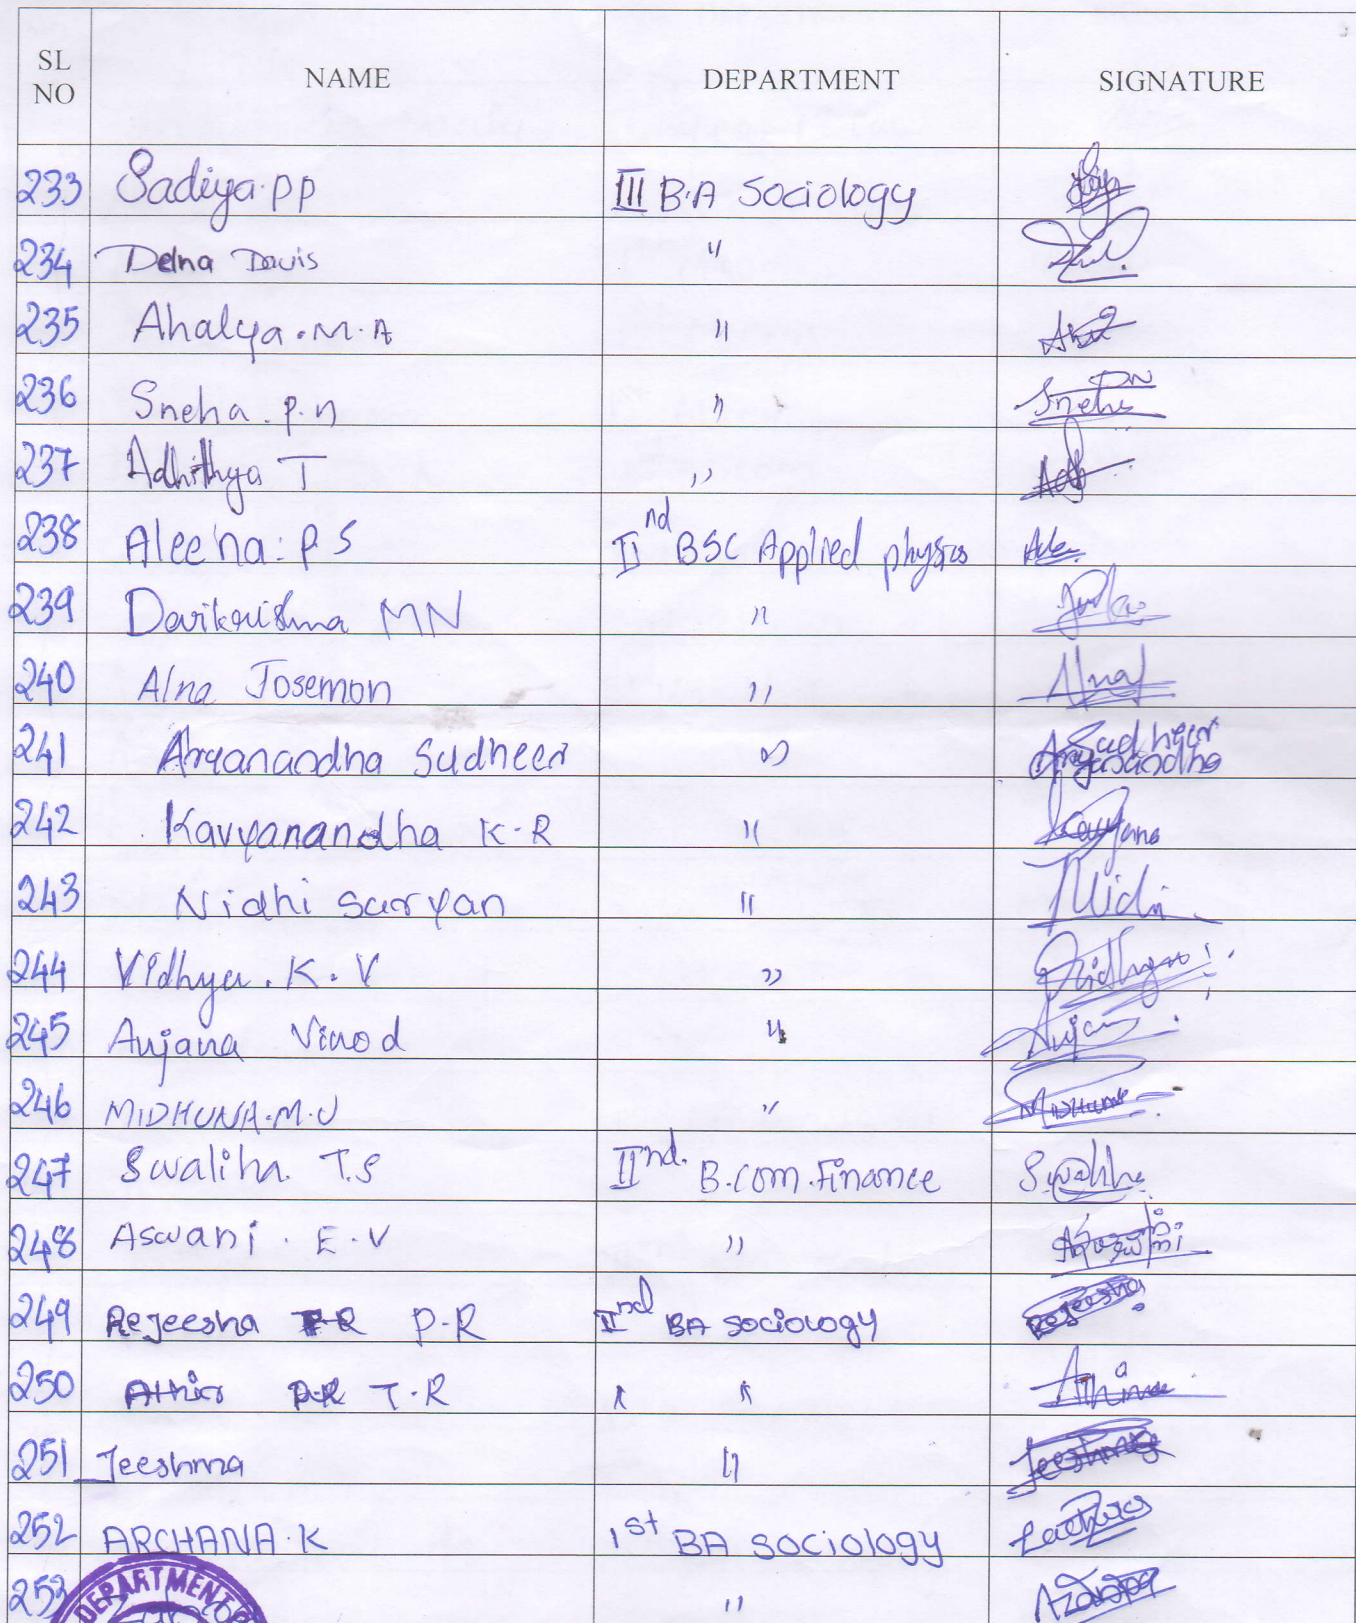 SL NO NAME DEPARTMENT SIGNATURE
233 Sadiya.PP III B.A Sociology
234 Delna Davis " 
235 Ahalya.M.A "
236 Sneha.P.n " Sneha PN
237 Adhithya T "
238 Aleena.P S IInd BSC Applied physics
239 Davikrishna MN "
240 Alna Josemon " Alna
241 Aryanandha Sudheer " Aryanandha Sudheer
242 Kavyanandha K-R "
243 Nidhi Suryan " Nidhi
244 Vidhya.K.V " Vidhya
245 Anjana Vinod " Anjana
246 MIDHUNA.M.U " MIDHUNA
247 Swaliha T.S IInd. B.com.Finance Swaliha
248 Aswani. E.V "
249 Rejeesha P-R IInd BA Sociology Rejeesha
250 Athira T-R " " Athira
251 Jeeshma " Jeeshma
252 ARCHANA.K 1st BA Sociology
253 "
DEPARTMENT